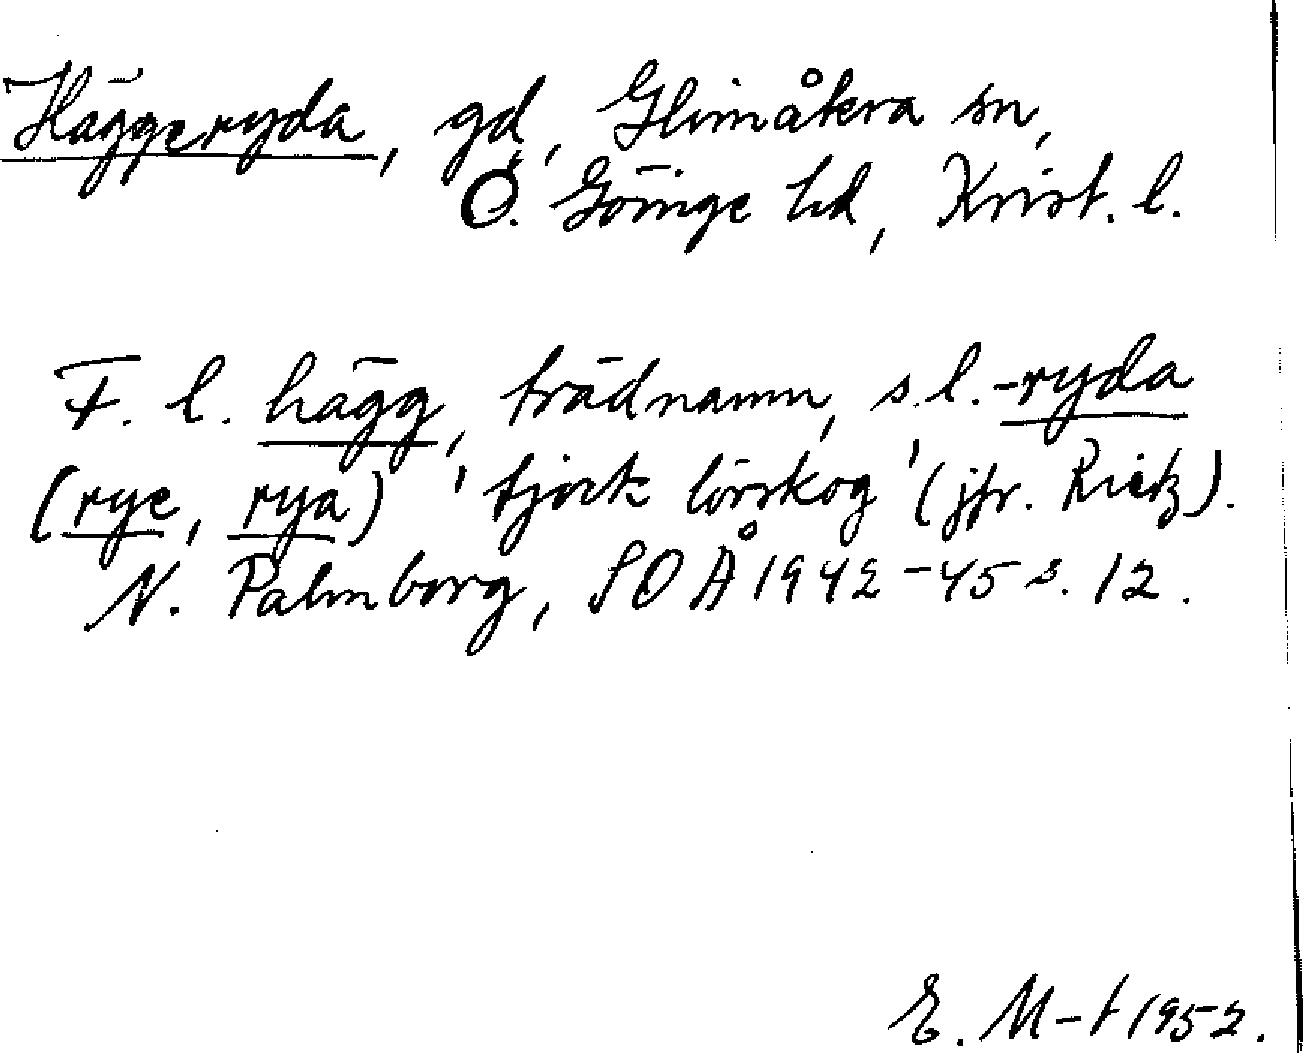 Häggeryda, gd, Glimåkra sn,
Ö. Göinge hd, Krist. l.
F. l. hägg, trädnamn, s. l. -ryda
(rye, rya) 'tjock lövskog' (jfr. Rietz).
N. Palmborg, SOÅ 1942-45 s. 12.
E. M-t 1952.